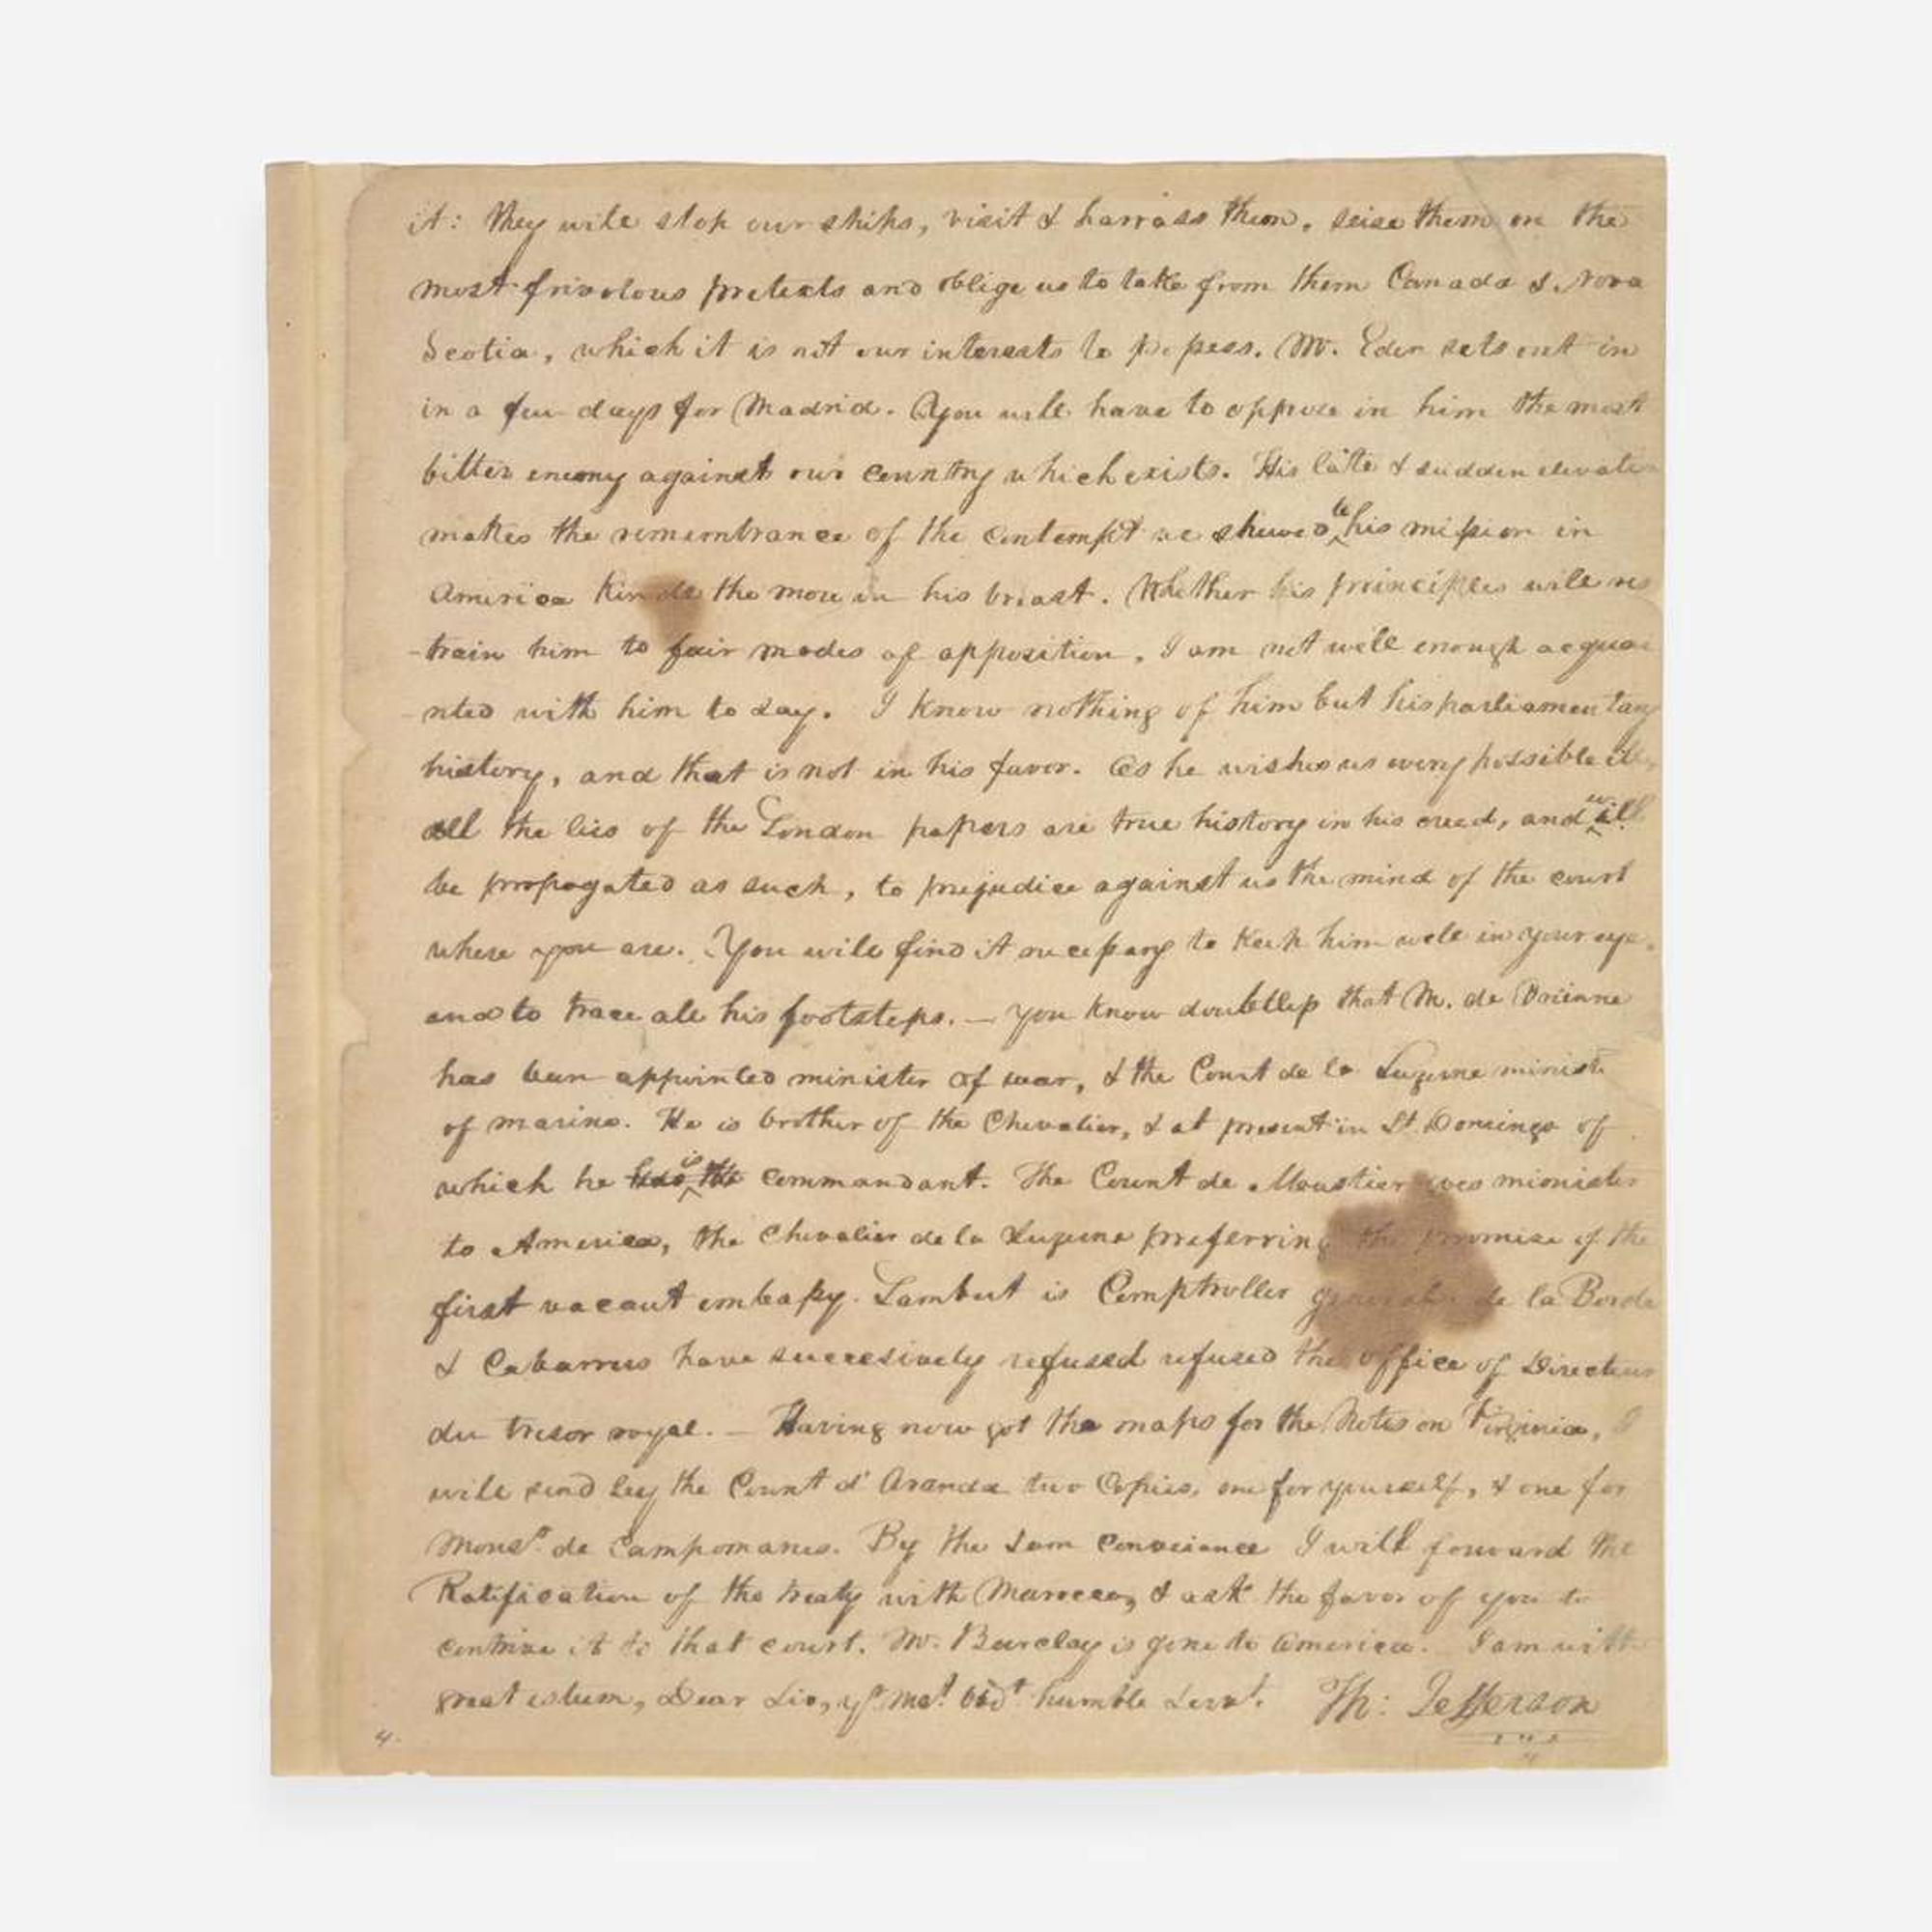 it: they will stop our ships, visit & harrass them, seise them on the
most frivolous pretexts and oblige us to take from them Canada & Nova
Scotia, which it is not our interests to possess. Mr. Eden sets out in
in a few days for Madrid. You will have to oppose in him the most
bitter enemy against our country which exists. His late & sudden elevation
makes the remembrance of the contempt we shewed to his mission in
America the more in his breast. Whether his principles will res
-train him to fair modes of opposition, I am not well enough acquai
-nted with him to say. I know nothing of him but his parliamentary
history, and that is not in his favor. As he wishes us every possible ill,
all the lies of the London papers are true history in his creed, and will
be propogated as such, to prejudice against us the mind of the court
where you are. You will find it necessary to keep him well in your eye,
and to trace all his footsteps. — You know doubtless that M. de Brienne
has been appointed minister of war, & the Count de la Luzerne ministe
of marine. He is brother of the Chevalier, & at present in St. Domingo of
which he is commandant. The Count de Moustier goes minister
to America, the Chevalier de la Luzerne preferring the promise of the
first vacant embassy. Lambert is Comptroller general. de la Borde
& Cabarrus have succesively refused refused the office of Directeur
du tresor royal. — Having now got the maps for the Notes on Virginia, I
will send by the Count d' Aranda two Copies, one for yourself, & one for
Monsr. de Campomanes. By the same conveiance I will forward the
Ratification of the treaty with Marocco, & ask the favor of you to
contrive it to that court. Mr. Barclay is gone to America. I am with
great esteem, Dear Sir, yr. mot. obdt. humble servt. Th: Jefferson
4.